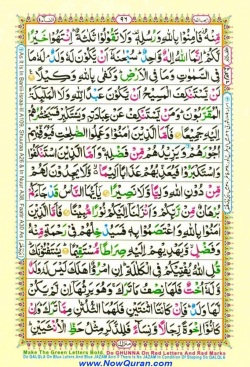 مِّنْهُ فَاٰمِنُوْا بِاللّٰهِ وَرُسُلِهٖ وَلَا تَقُوْلُوْا ثَلٰثَةٌ اِنْتَهُوْا خَيْرًا
لَّكُمْ اِنَّمَا اللّٰهُ اِلٰهٌ وَّاحِدٌ سُبْحٰنَهٗٓ اَنْ يَّكُوْنَ لَهٗ وَلَدٌ لَهٗ مَا
فِي السَّمٰوٰتِ وَمَا فِي الْاَرْضِ وَكَفٰى بِاللّٰهِ وَكِيْلًا لَنْ
يَّسْتَنْكِفَ الْمَسِيْحُ اَنْ يَّكُوْنَ عَبْدًا لِّلّٰهِ وَلَا الْمَلٰٓئِكَةُ
الْمُقَرَّبُوْنَ وَمَنْ يَّسْتَنْكِفْ عَنْ عِبَادَتِهٖ وَيَسْتَكْبِرْ فَسَيَحْشُرُهُمْ
اِلَيْهِ جَمِيْعًا فَاَمَّا الَّذِيْنَ اٰمَنُوْا وَعَمِلُوا الصّٰلِحٰتِ فَيُوَفِّيْهِمْ
اُجُوْرَهُمْ وَيَزِيْدُهُمْ مِّنْ فَضْلِهٖ وَاَمَّا الَّذِيْنَ اسْتَنْكَفُوْا
وَاسْتَكْبَرُوْا فَيُعَذِّبُهُمْ عَذَابًا اَلِيْمًا وَّلَا يَجِدُوْنَ لَهُمْ
مِّنْ دُوْنِ اللّٰهِ وَلِيًّا وَّلَا نَصِيْرًا يٰٓاَيُّهَا النَّاسُ قَدْ جَآءَكُمْ
بُرْهَانٌ مِّنْ رَّبِّكُمْ وَاَنْزَلْنَآ اِلَيْكُمْ نُوْرًا مُّبِيْنًا فَاَمَّا الَّذِيْنَ
اٰمَنُوْا بِاللّٰهِ وَاعْتَصَمُوْا بِهٖ فَسَيُدْخِلُهُمْ فِيْ رَحْمَةٍ مِّنْهُ
وَفَضْلٍ وَّيَهْدِيْهِمْ اِلَيْهِ صِرَاطًا مُّسْتَقِيْمًا يَسْتَفْتُوْنَكَ
قُلِ اللّٰهُ يُفْتِيْكُمْ فِي الْكَلٰلَةِ اِنِ امْرُؤٌا هَلَكَ لَيْسَ لَهٗ وَلَدٌ
وَّلَهٗٓ اُخْتٌ فَلَهَا نِصْفُ مَا تَرَكَ وَهُوَ يَرِثُهَآ اِنْ لَّمْ يَكُنْ
لَّهَا وَلَدٌ فَاِنْ كَانَتَا اثْنَتَيْنِ فَلَهُمَا الثُّلُثٰنِ مِمَّا تَرَكَ وَاِنْ
كَانُوْٓا اِخْوَةً رِّجَالًا وَّنِسَآءً فَلِلذَّكَرِ مِثْلُ حَظِّ الْاُنْثَيَيْنِ
Make The Green Letters Bold, Do GHUNNA On Red Letters And Red Marks
www.NowQuran.com